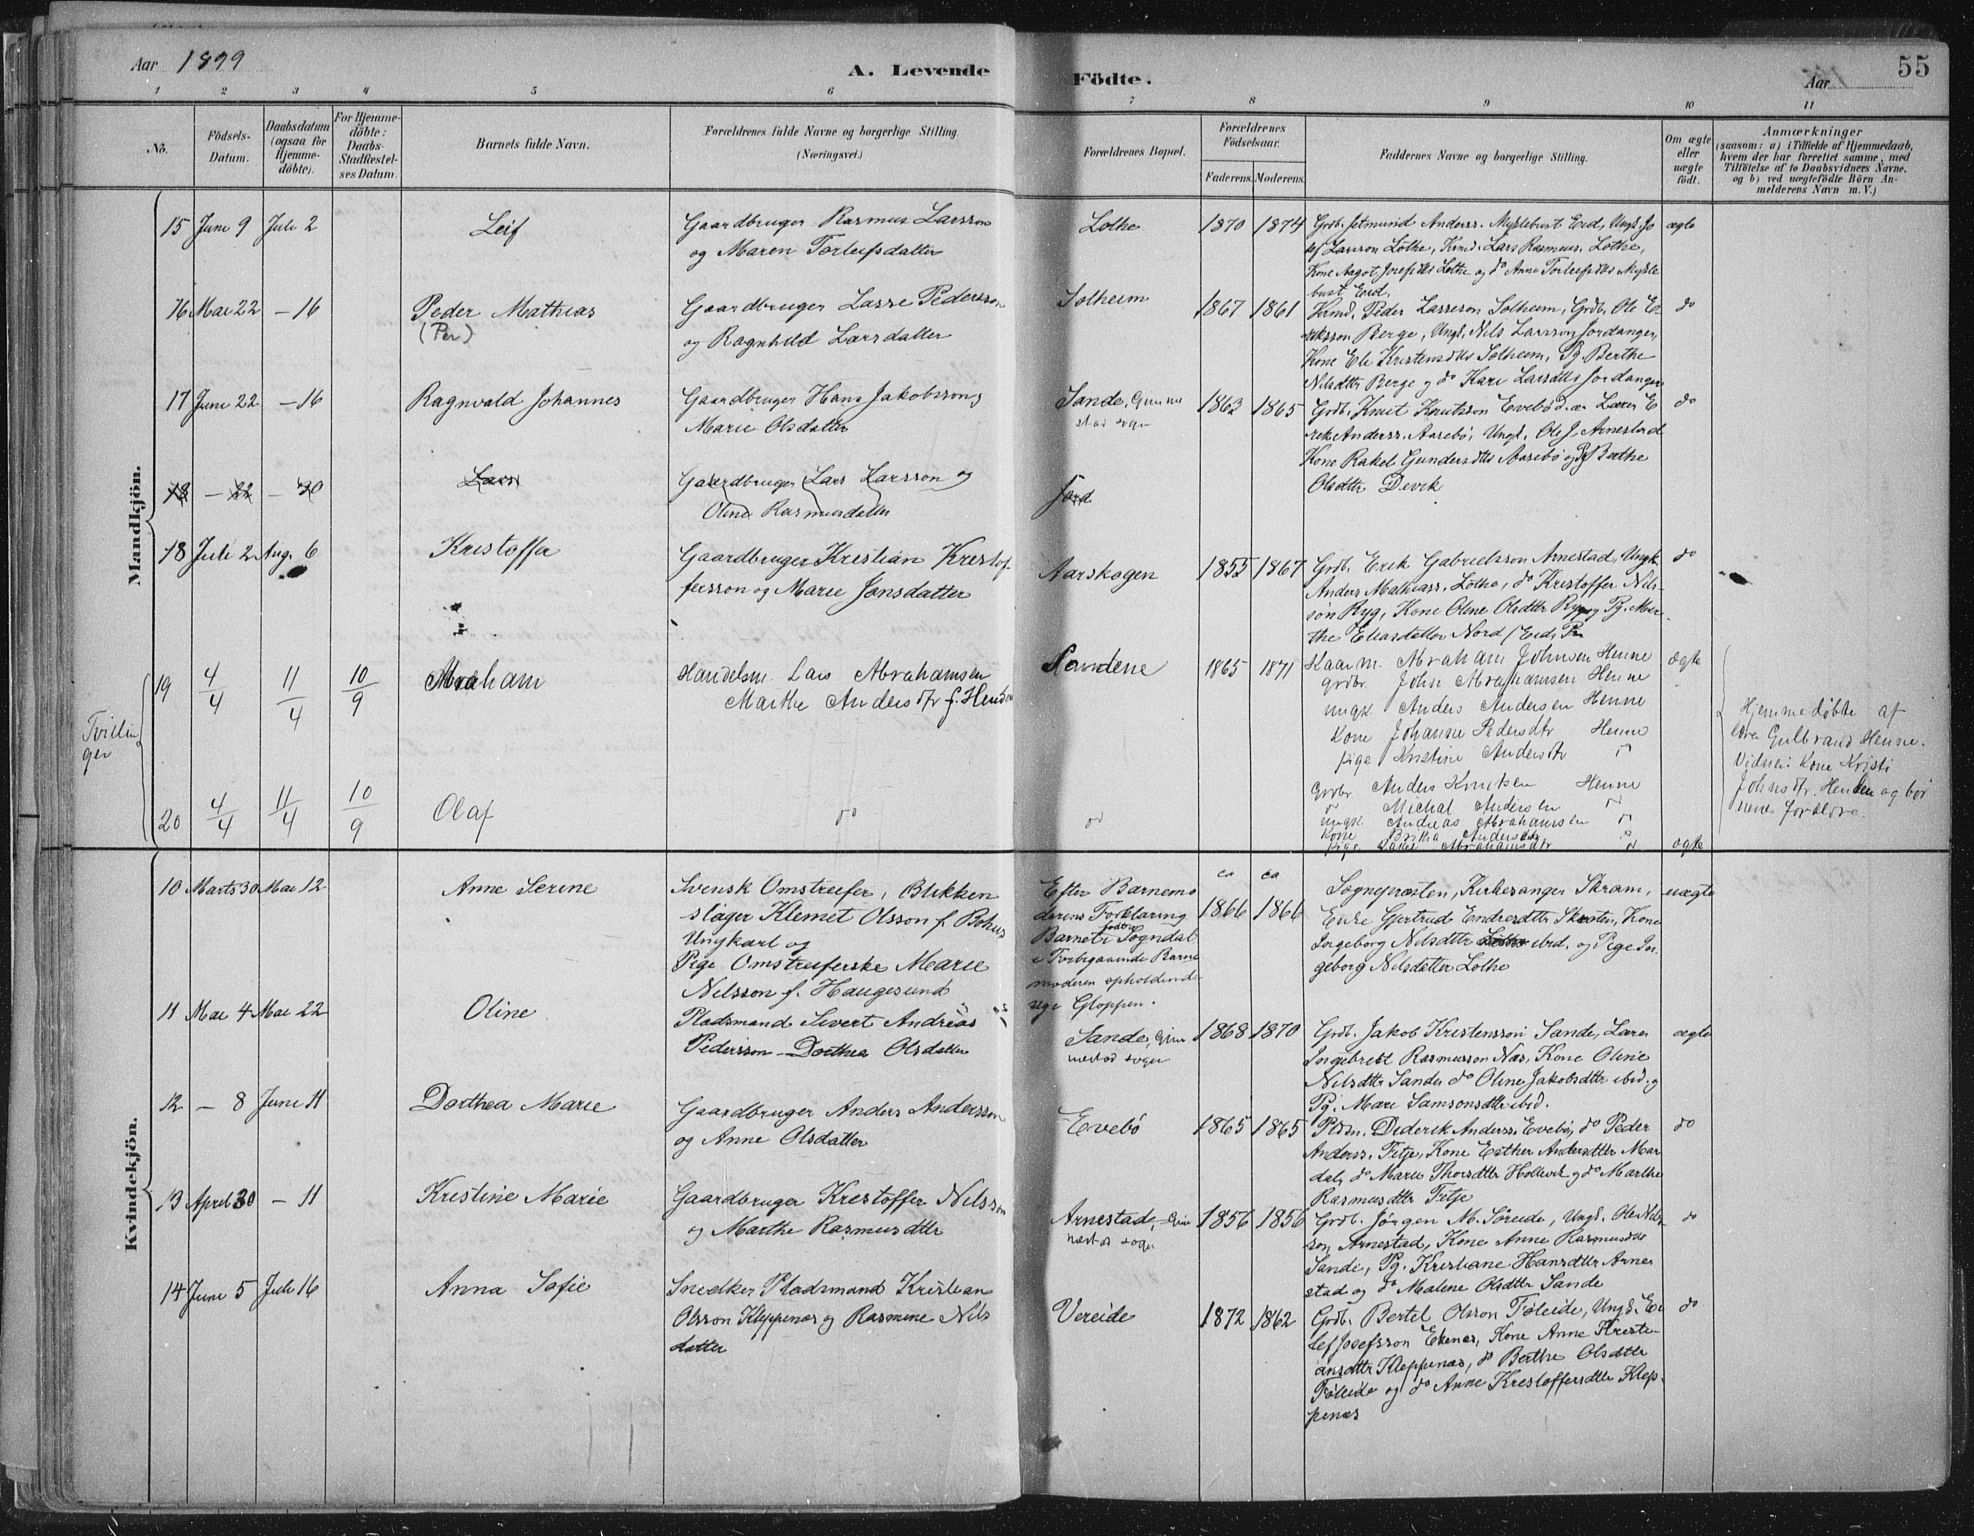 Aar 1899
A. Levende Födte.
Aar
55
1 2 3 4 5 6 7 8 9 10 11
No.
Födsels-
Datum.
Daabsdatum
(ogsaa for
Hjemme-
döbte).
For Hjemme-
döbte:
Daabs-
Stadfæstel-
ses Datum.
Barnets fulde Navn.
Forældrenes fulde Navne og borgerlige Stilling.
(Næringsvei.)
Forældrenes Bopæl.
Forældrenes
Födselsaar.
Faderens. Moderens.
Faddernes Navne og borgerlige Stilling.
Om ægte
eller
uægte
födt.
Anmærkninger
(saasom: a) i Tilfælde af Hjemmedaab,
hvem der har forrettet samme, med
Tilföielse af to Daabsvidners Navne,
og b) ved uægtefödte Börn An-
melderens Navn m. V.)
Mandkjön.
15 Juni 9 Juli 2
Leif
Gaardbruger Rasmus Larsson
og Maren Torleifsdatter
Lothe
1870 1874
Grdb. Jetmund Anderss. Myklebust Eid, Ungk. Jo
sef Larsson Lothe, Kmd. Lars Rasmuss. Lothe,
Kone Aagot Josefsdtr Lothe og do Anne Torleifsdtr Mykle
bust Eid.
ægte
16 Mai 22 – 16
Peder Mathias
(Per)
Gaardbruger Lasse Pedersson
og Ragnhild Larsdatter
Solheim
1867 1861
Kmd. Peder Lassesson Solheim, Grdb. Ole E
riksson Berge, Ungk. Nils Larsson Jordanger,
Kone Eli Kristensdtr Solheim, Pg. Berthe
Nilsdtr Berge og do Kari Larsdtr Jordanger
do
17 Juni 22 – 16
Ragnvald Johannes
Gaardbruger Hans Jakobsson og
Marie Olsdatter
Sande, Gimme
stad sogn
1863 1865
Grdb. Knut Knutsson Evebö, Lærer E
rik Anderss. Aasebö, Ungk. Ole J. Arnestad
Kone Rakel Gundersdtr Aasebö og Pg. Berthe
Olsdtr Devik
do
18 – 22 – 30
Lars
Gaardbruger Lars Larsson og
Oline Rasmusdatter
18 Juli 2 Aug. 6
Kristoffer
Gaardbruger Kristian Kristof
fersson og Marie Jonsdatter
Aarskogen
1855 1867
Grdb. Erik Gabrielsson Arnestad, Ungk.
Anders Mathiass. Lothe, do Kristoffer Nils-
sön Ryg, Kone Oline Olsdtr Ryg og Pg. Mar-
the Eliasdatter Nord / Eid.
do
Tvillin
ger
19 4/4 11/4 10/9
Abraham
Handelsm. Lars Abrahamsen
Marthe Andersdtr f. Henden
Sandene
1865 1871
Kaarm. Abraham Johnsen Henne
grdbr. John Abrahamsen Henne
ungk. Anders Andersen Henne
Kone Johanne Pedersdtr Henne
pige Kristine Andersdtr do
ægte
Hjemmedöbte af
lærer Gulbrand Henne.
Vidner: Kone Kristi
Johnsdtr. Henden og bör
nenes forældre.
20 4/4 11/4 10/9
Olaf
do
do
Grdbr. Anders Knutsen Henne
do Michal Andersen do
ungk. Andreas Abrahamsen do
Kone Britha Andersdtr do
Pige Abrahamsdtr do
ægte
Kvindekjön.
10 Marts 30 Mai 12
Anne Serine
Svensk Omstreifer, Blikken
slager Klemet Olsson f. Bohus
Ungkarl og
Pige Omstreiferske Marie
Nilsson f. Haugesund
Efter Barnemo
derens Forklaring
Barnet födt i Sogndal
i Forbigaaende Barne
moderen opholdende
sig i Gloppen.
ca 1866 ca 1866
Sognepræsten, Kirkesanger Skram,
Enke Gjertrude Endresdtr Skrøten, Kone
Ingeborg Nilsdtr ibid, og Pige In
geborg Nilsdatter Lothe
uægte
11 Mai 4 Mai 22
Oline
Pladsmand Sivert Andreas
Pedersson – Dorthea Olsdatter
Sande, Gim
mestad sogn
1868 1870
Grdb. Jakob Kristensson Sande, Lærer
Ingebret Rasmusson Næs, Kone Oline
Nilsdtr Sande, do Oline Jakobsdtr ibid. og
Pg. Mari Samsonsdtr ibid.
ægte
12 – 8 Juni 11
Dorthea Marie
Gaardbruger Anders Andersson
og Anne Olsdatter
Evebö
1865 1865
Pldm. Diderik Anderss. Evebö, do Peder
Anderss. Fitje, Kone Esther Andersdtr Mar
dal, do Marie Thorsdtr Hollevik og do Marthe
Rasmusdtr Fitje
do
13 April 30 – 11
Kristine Marie
Gaardbruger Kristoffer Nilsson
og Marthe Rasmusdtr
Arnestad, Gim
mestad sogn
1856 1856
Grdb. Jörgen M. Söreide, Ungk. Ole Nils-
son Arnestad, Kone Anne Rasmusdtr
Sande, Pg. Kristiane Hansdtr Arne
stad og do Malene Olsdtr Sande
do
14 Juni 5 Juli 16
Anna Sofie
Snedker Pladsmand Kristian
Olsson Kleppenæs og Rasmine Nils
datter
Vereide
1872 1862
Grdb. Bertel Olsson Föleide, Ungk. E
lef Josefsson Ekenæs, Kone Anne Kristi-
ansdtr Kleppenæs, do Berthe Olsdtr
Föleide og do Anne Kristoffersdtr Klep-
penæs
do